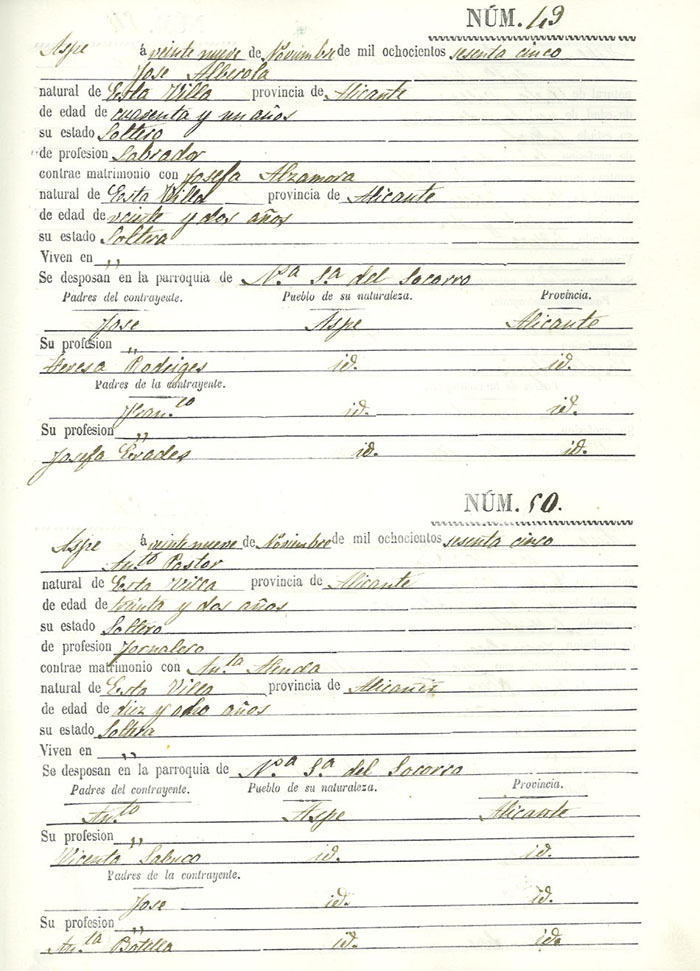 NÚM. 49
Aspe á veinte nueve de Noviembre de mil ochocientos sesenta cinco
Jose Alberola
natural de Esta Villa provincia de Alicante
de edad de cuarenta y un años
su estado Soltero
de profesion Labrador
contrae matrimonio con Josefa Alzamora
natural de Esta Villa provincia de Alicante
de edad de veinte y dos años
su estado Soltera
Viven en ,,
Se desposan en la parroquia de N.ª S.ª del Socorro
Padres del contrayente. Pueblo de su naturaleza. Provincia.
Jose Aspe Alicante
Su profesion ,,
Teresa Rodriges id. id.
Padres de la contrayente.
Fran.co id. id.
Su profesion ,,
Josefa Erades id. id.
NÚM. 50.
Aspe á veinte nueve de Noviembre de mil ochocientos sesenta cinco
An.to Pastor
natural de Esta Villa provincia de Alicante
de edad de treinta y dos años
su estado Soltero
de profesion Jornalero
contrae matrimonio con An.ta Alenda
natural de Esta Villa provincia de Alicante
de edad de diez y ocho años
su estado Soltera
Viven en ,,
Se desposan en la parroquia de N.ª S.ª del Socorro
Padres del contrayente. Pueblo de su naturaleza. Provincia.
An.to Aspe Alicante
Su profesion ,,
Vicenta Sabuco id. id.
Padres de la contrayente.
Jose id. id.
Su profesion ,,
An.ta Botella id. id.